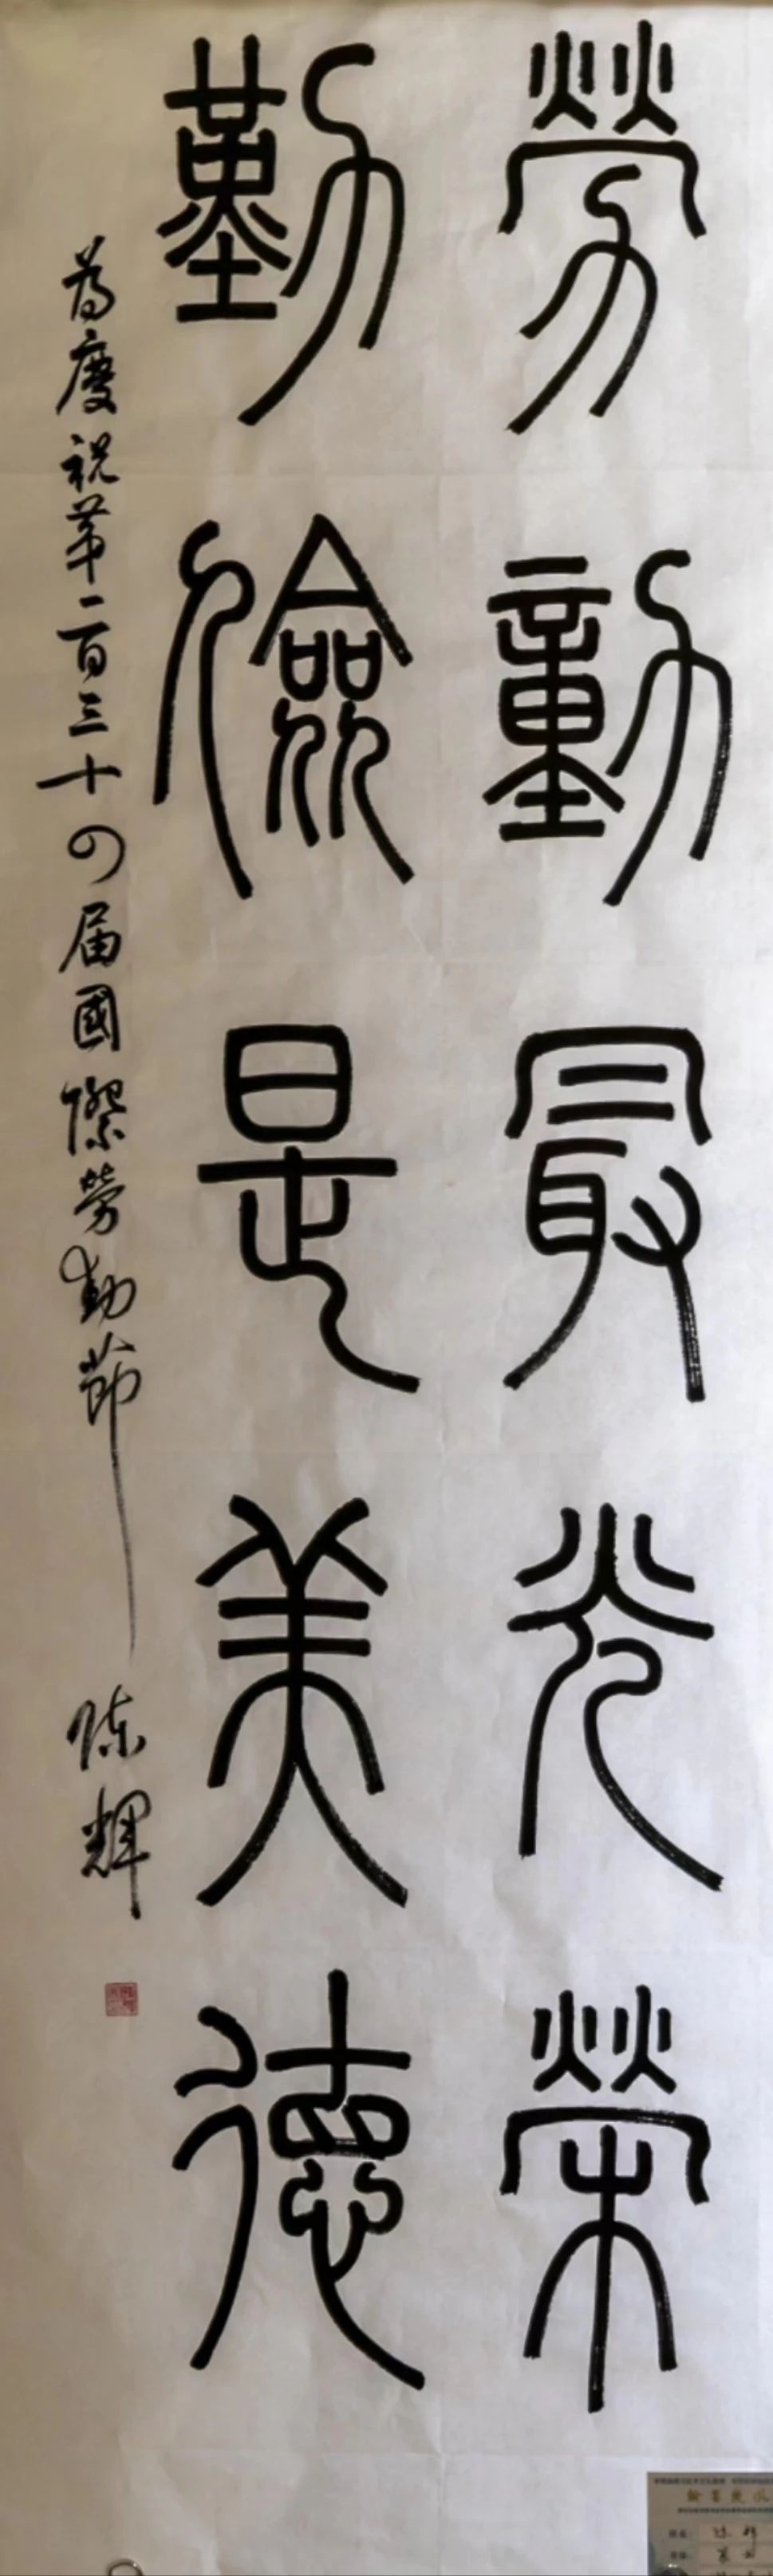 勞動最光榮
勤儉是美德
為慶祝第一百三十四屆國際勞動節
陳輝